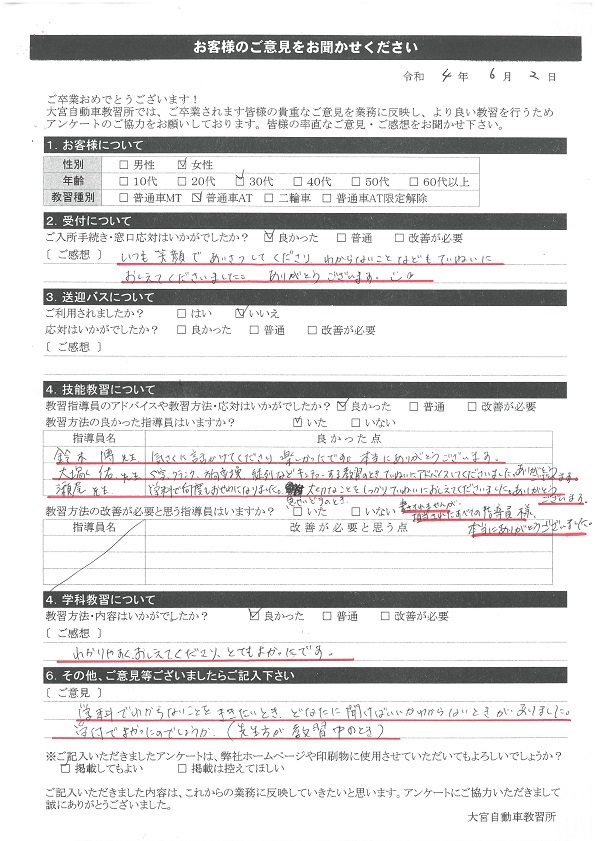 お客様のご意見をお聞かせください
令和 4 年 6 月 2 日
ご卒業おめでとうございます！
大宮自動車教習所では、ご卒業されます皆様の貴重なご意見を業務に反映し、より良い教習を行うため
アンケートのご協力をお願いしております。皆様の率直なご意見・ご感想をお聞かせ下さい。
1. お客様について
性別 □ 男性 ☑ 女性
年齢 □ 10代 □ 20代 ☑ 30代 □ 40代 □ 50代 □ 60代以上
教習種別 □ 普通車MT ☑ 普通車AT □ 二輪車 □ 普通車AT限定解除
2. 受付について
ご入所手続き・窓口応対はいかがでしたか？ ☑ 良かった □ 普通 □ 改善が必要
〔 ご感想 〕 いつも笑顔であいさつしてくださり わからないことなどもていねいに
おしえてくださいました。 ありがとうございます。
3. 送迎バスについて
ご利用されましたか？ □ はい ☑ いいえ
応対はいかがでしたか？ □ 良かった □ 普通 □ 改善が必要
〔 ご感想 〕
4. 技能教習について
教習指導員のアドバイスや教習方法・応対はいかがでしたか？ ☑ 良かった □ 普通 □ 改善が必要
教習方法の良かった指導員はいますか？ ☑ いた □ いない
指導員名 良かった点
鈴木 先生 気さくに話かけてくださり 楽しかったです。本当にありがとうございます。
大塚 佑 先生 S字、クランク、方向変換 縦列など 教習のとき、ていねいにアドバイスしてくださいました。ありがとうございます。
瀬尾 先生 学科で何度もおせわになりました。 大切なことをしっかりていねいにおしえてくださいました。ありがとうございます。
教習方法の改善が必要と思う指導員はいますか？ □ いた □ いない
書ききれませんが、
担当されたすべての指導員様、
本当にありがとうございました。
指導員名 改善が必要と思う点
4. 学科教習について
教習方法・内容はいかがでしたか？ ☑ 良かった □ 普通 □ 改善が必要
〔 ご感想 〕
わかりやすくおしえてくださり、とてもよかったです。
6. その他、ご意見等ございましたらご記入下さい
〔 ご意見 〕
学科でわからないことをききたいとき、どなたに聞けばいいかわからないときがありました。
受付でよかったのでしょうか。(先生方が教習中のとき)
※ご記入いただきましたアンケートは、弊社ホームページや印刷物に使用させていただいてもよろしいでしょうか？
☑ 掲載してもよい □ 掲載は控えてほしい
ご記入いただきました内容は、これからの業務に反映していきたいと思います。アンケートにご協力いただきまして
誠にありがとうございました。
大宮自動車教習所